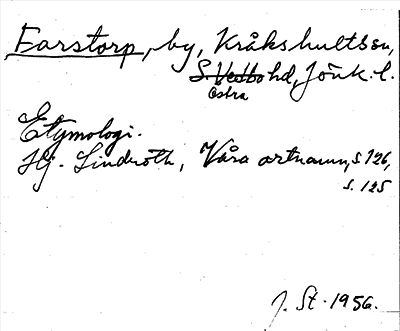 Farstorp, by, Kråkshults sn,
S. Vedbo hd, Jönk. l.
Östra
Etymologi.
Hj. Lindroth, Våra ortnamn, s. 126,
s. 125
J. St. 1956.